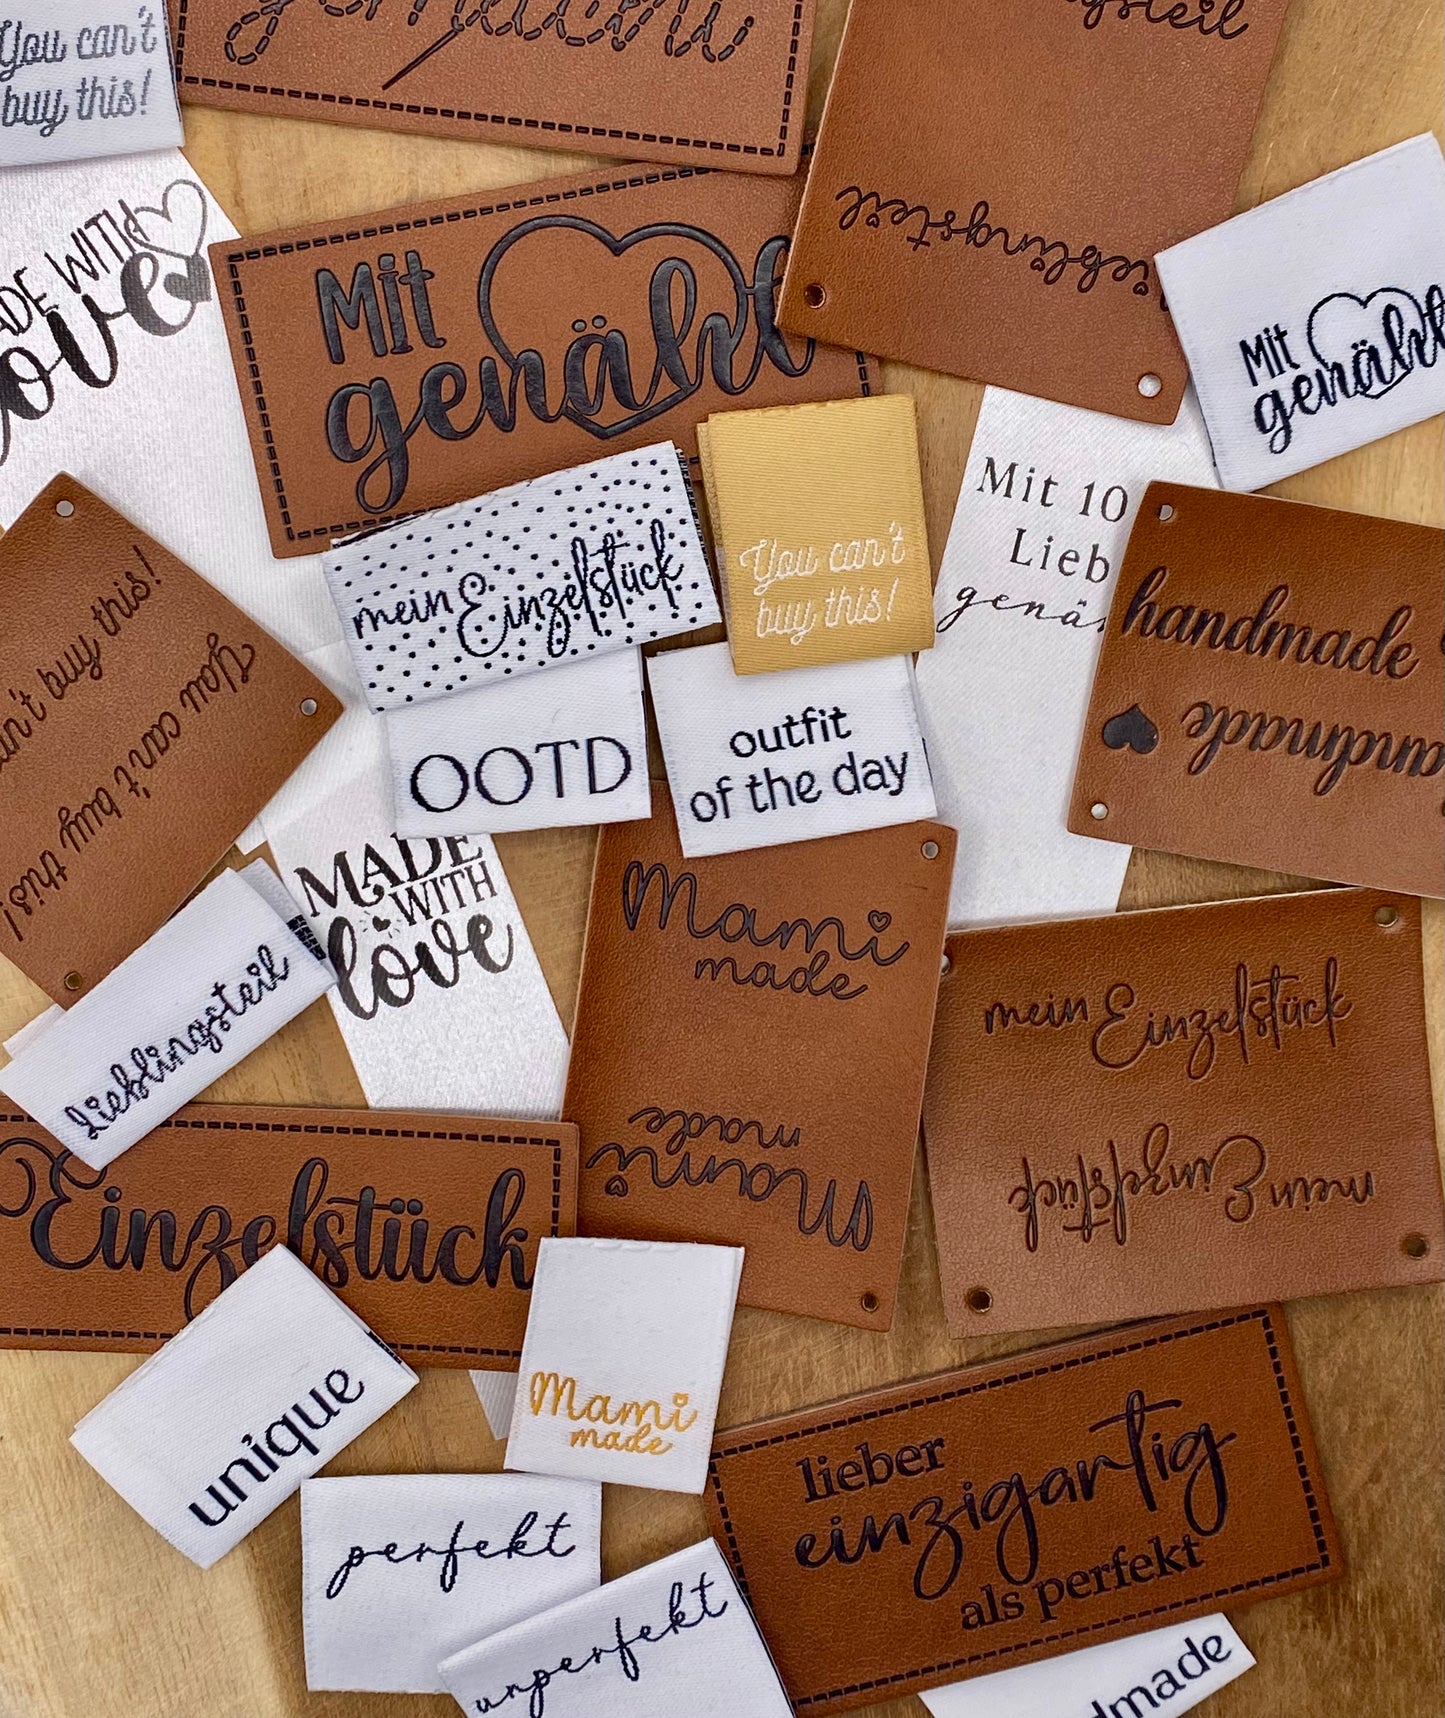 You can't
buy this!
MADE WITH
love
Mit
genäht
Lieblingsteil
Mit
genäht
mein Einzelstück
You can't
buy this!
Mit 10
Lieb
genä
handmade
handmade
You can't buy this!
You can't buy this!
OOTD
outfit
of the day
MADE
WITH
love
Lieblingsteil
Mami
made
Mami
made
mein Einzelstück
mein Einzelstück
Einzelstück
unique
Mami
made
perfekt
unperfekt
lieber
einzigartig
als perfekt